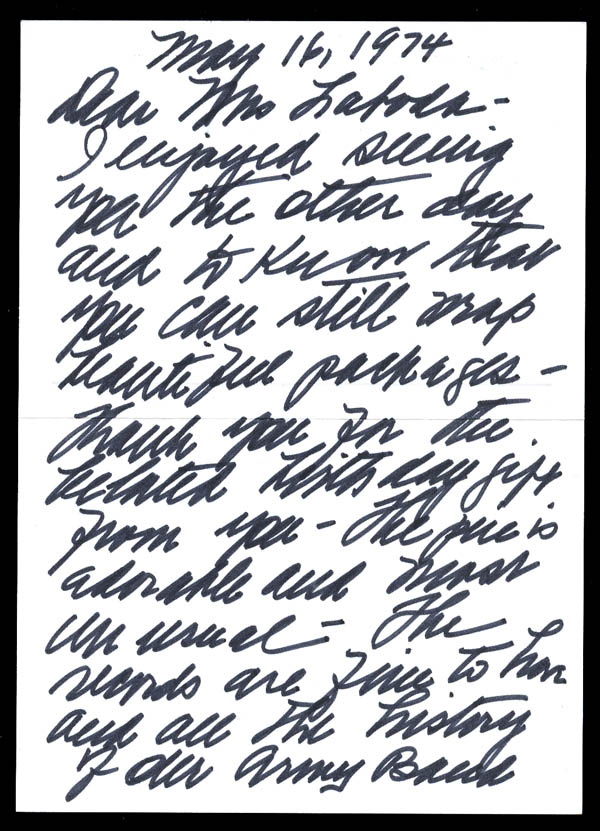 May 16, 1974
Dear Mrs Laboda -
I enjoyed seeing
you the other day
and to know that
you can still wrap
beautiful packages -
Thank you for the
belated birthday gift
from you - The pin is
adorable and most
unusual - The
records are fun to have
and all the history
of our Army Band